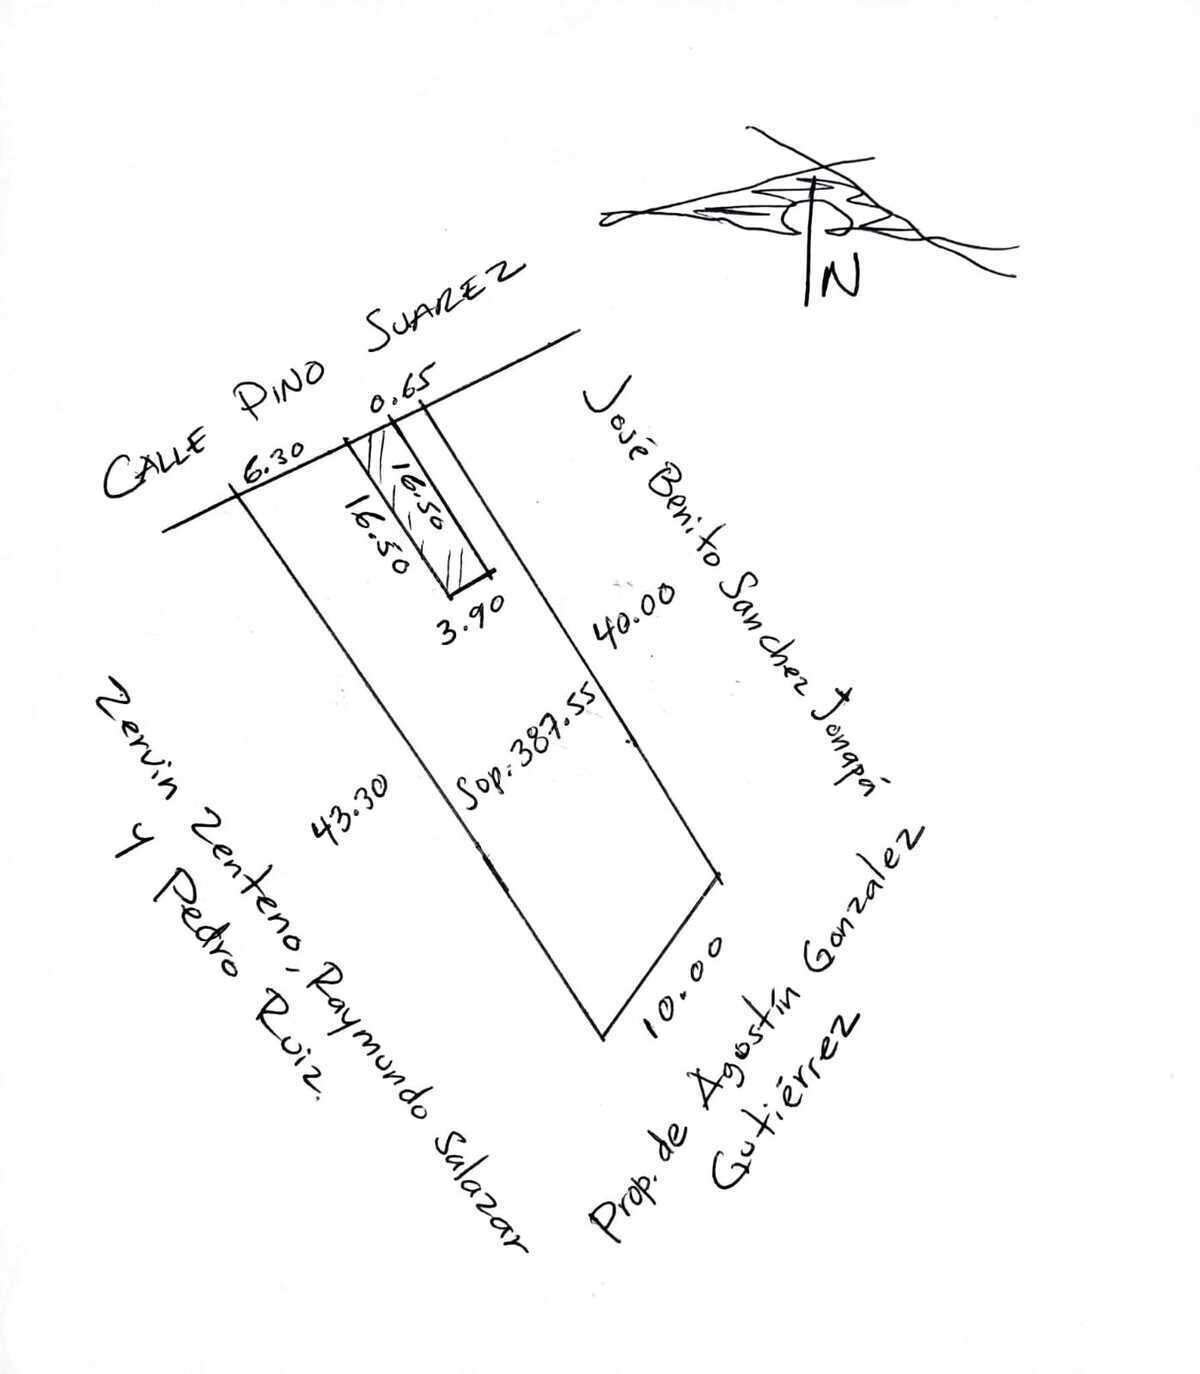 N
CALLE PINO SUAREZ
6.30
0.65
16.50
16.50
3.90
40.00
José Benito Sanchez Jonapá
Sup. 387.55
43.30
Zervin Zenteno, Raymundo Salazar
y Pedro Ruiz.
10.00
Prop. de Agostín Gonzalez
Gutiérrez